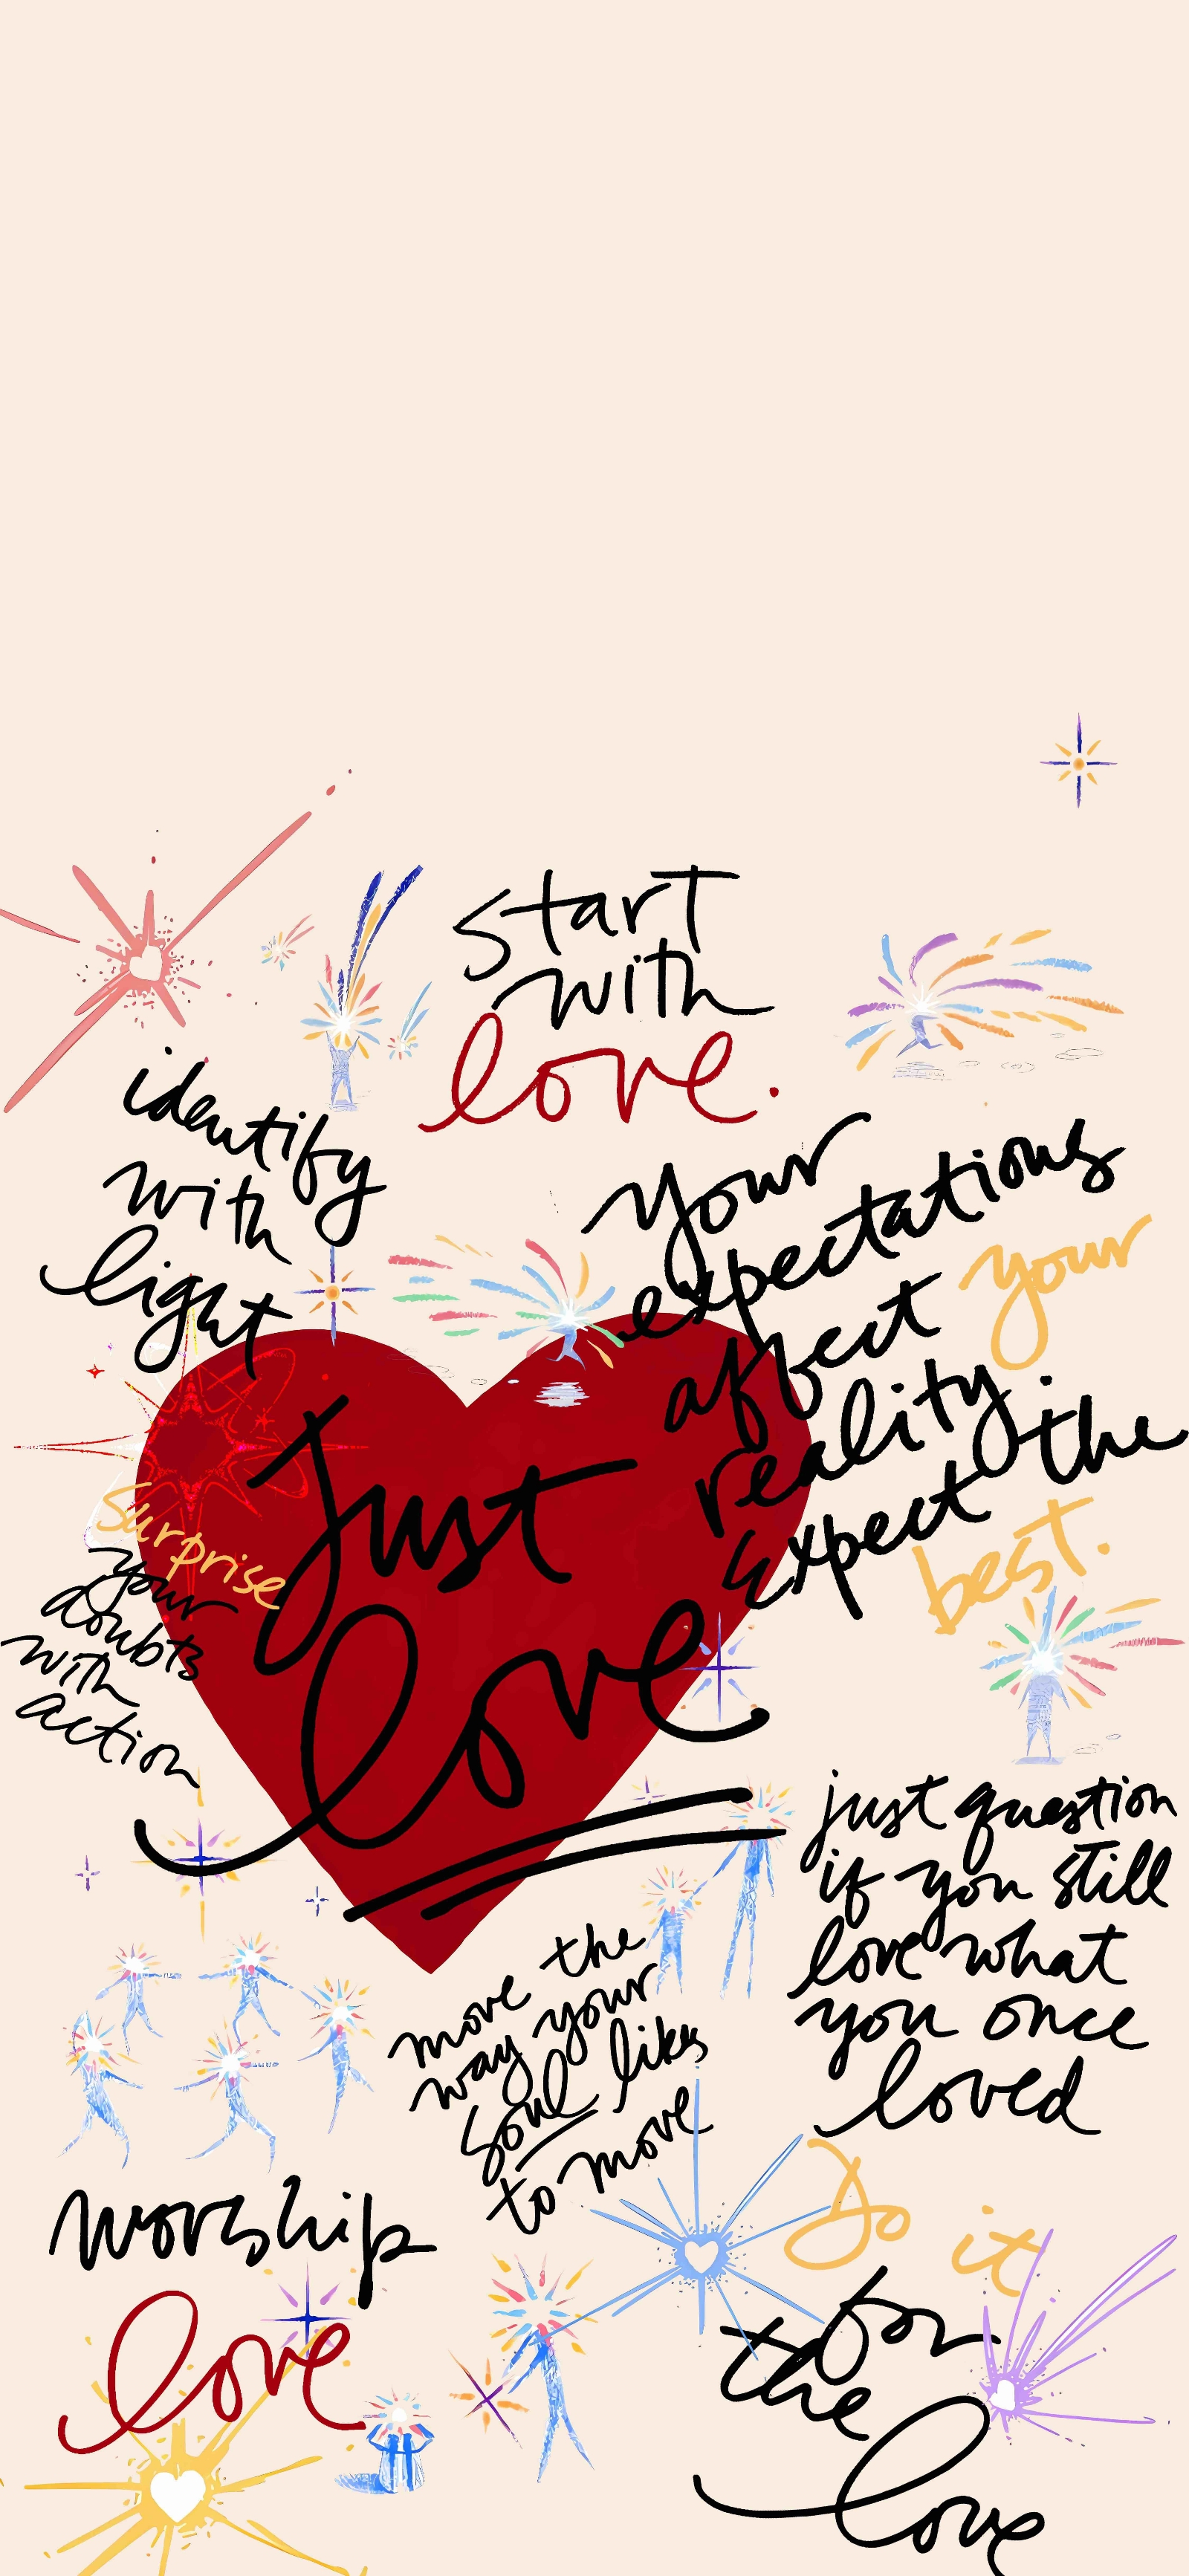 start
with
love.
identify
with
light
your
expectations
affect your
reality
expect the
best.
Just
love
Surprise
your
doubts
with
action
just question
if you still
love what
you once
loved
move the
way your
soul likes
to move
worship
love
Do it
for
the
love